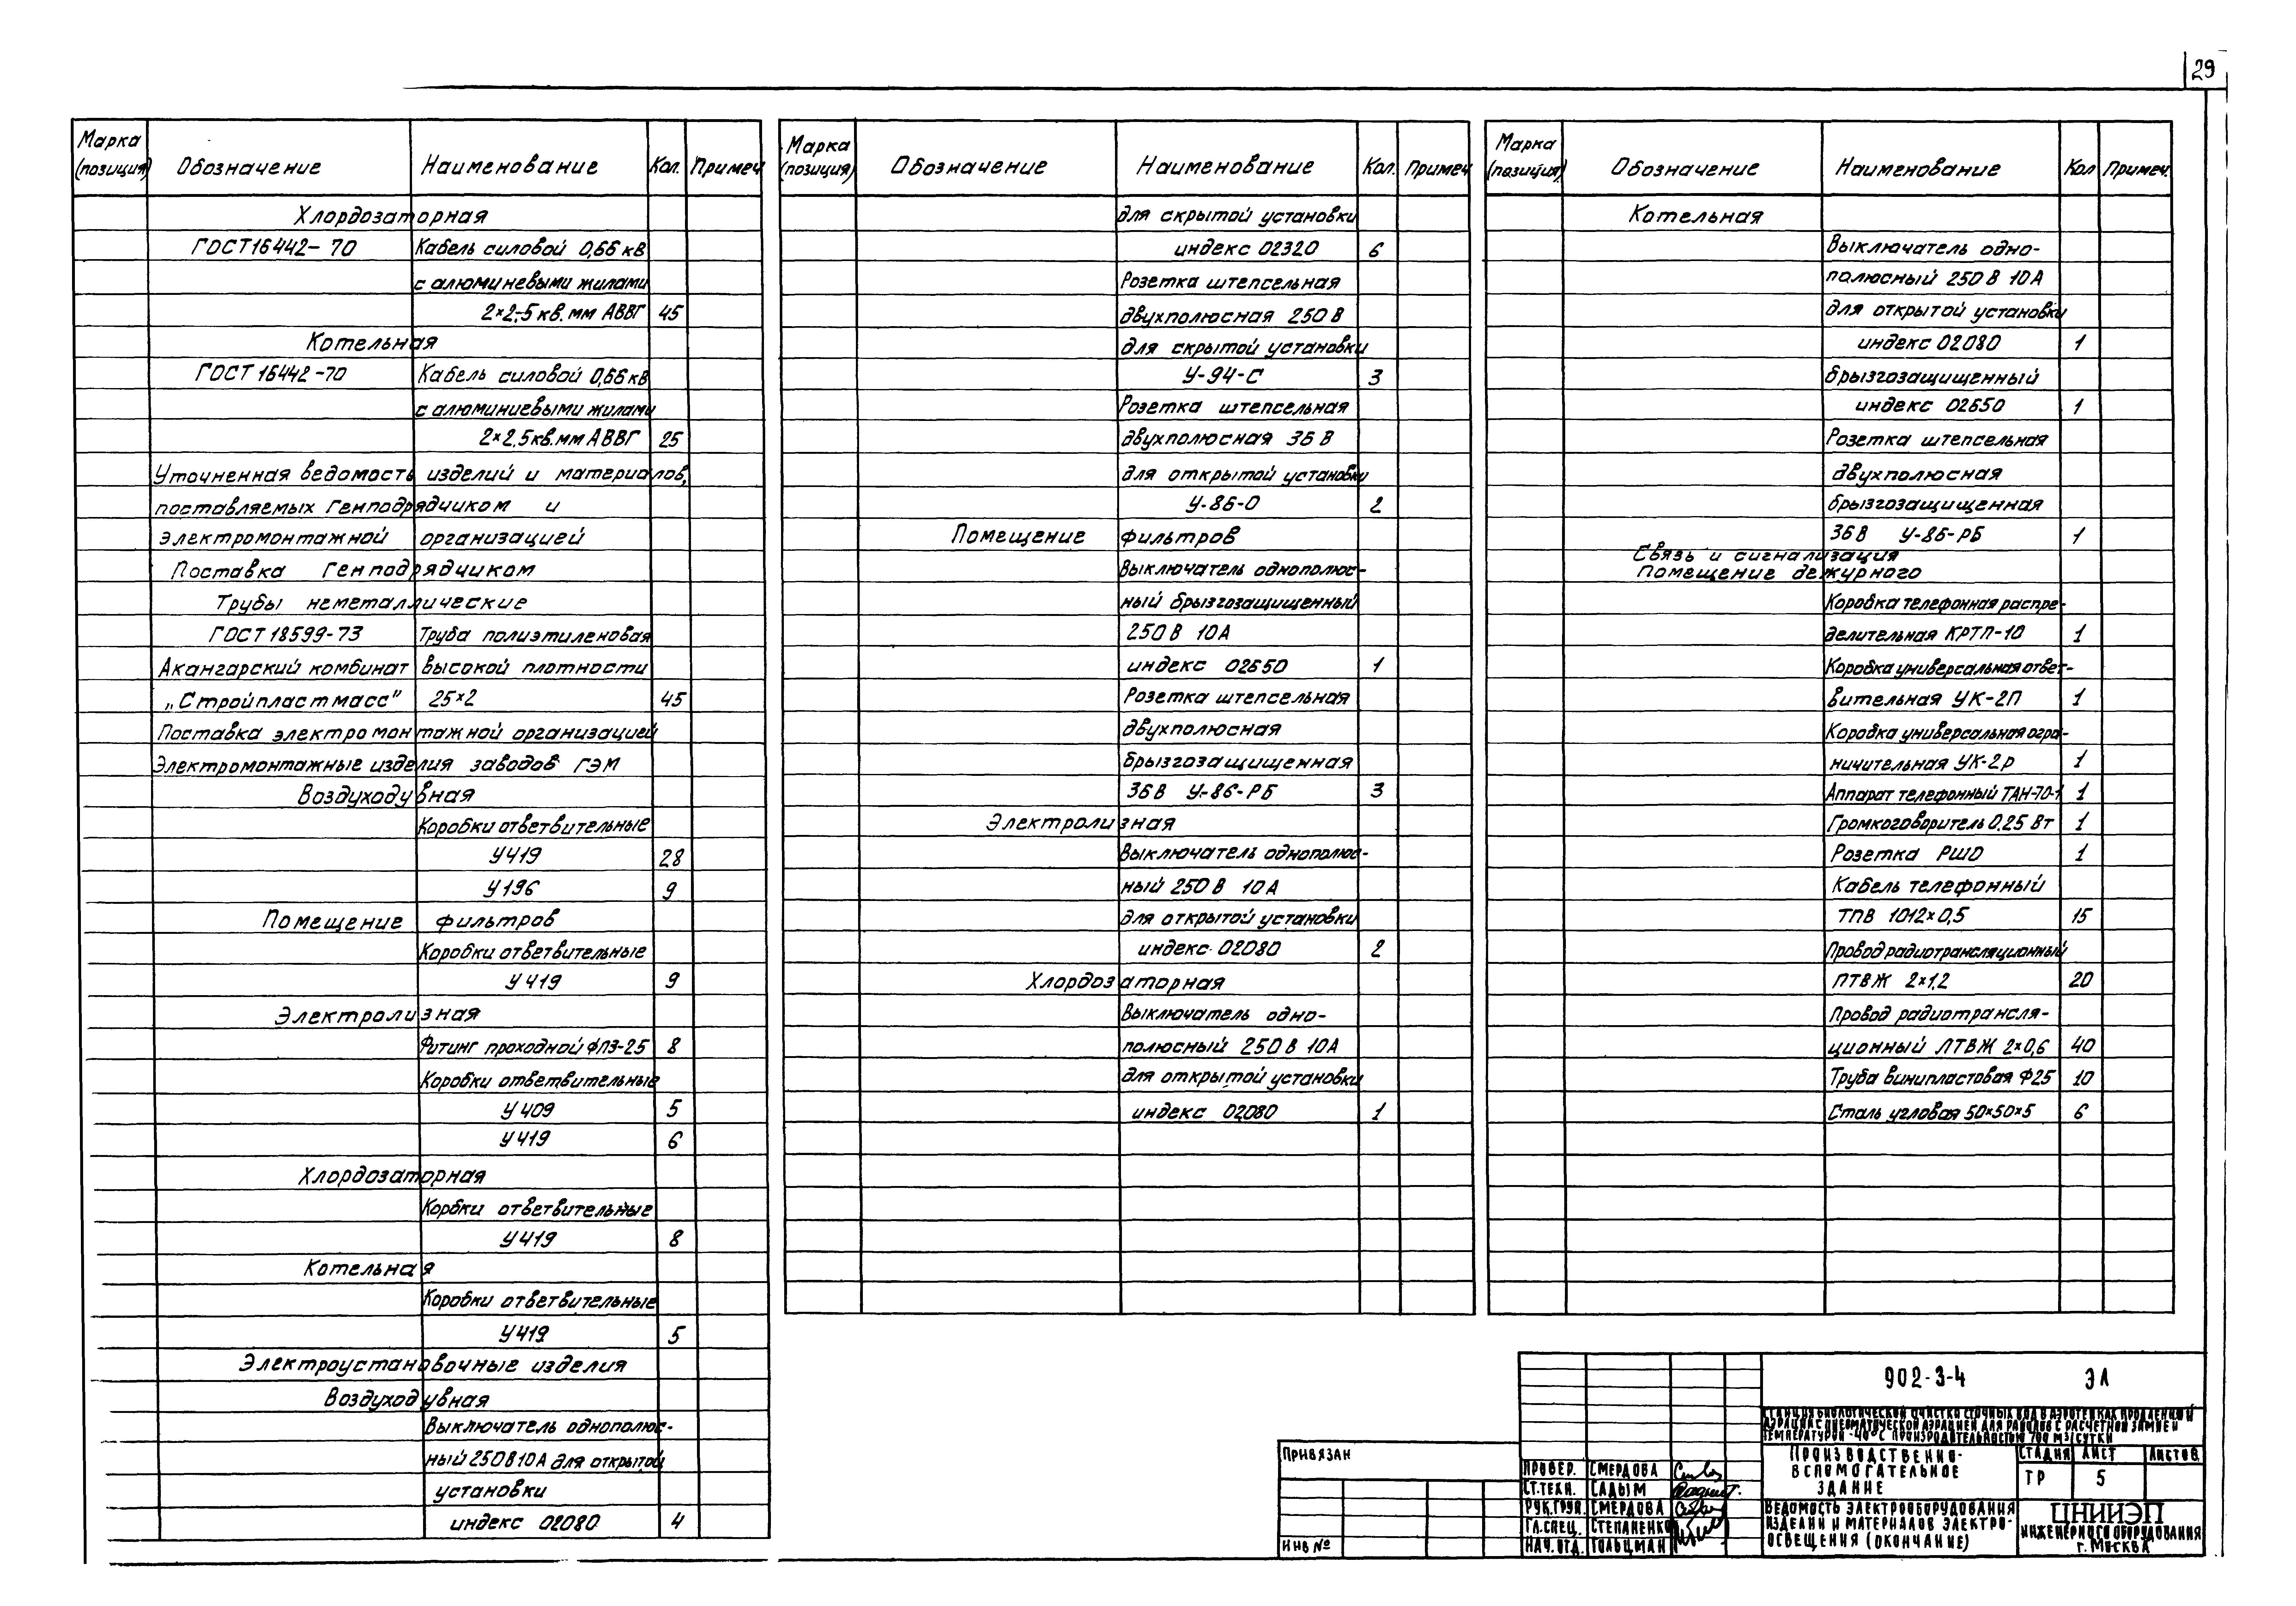 29
Марка (позиция) Обозначение Наименование Кол. Примеч
Хлордозаторная
ГОСТ 16442-70 Кабель силовой 0,66 кв
с алюминевыми жилами
2×2,5 кв. мм АВВГ 45
Котельная
ГОСТ 16442-70 Кабель силовой 0,66 кв
с алюминиевыми жилами
2×2,5 кв. мм АВВГ 25
Уточненная ведомость изделий и материалов,
поставляемых Генподрядчиком и
электромонтажной организацией
Поставка генподрядчиком
Трубы неметаллические
ГОСТ 18599-73 Труба полиэтиленовая
Акангарский комбинат высокой плотности
„Стройпластмасс" 25×2 45
Поставка электромонтажной организацией
Электромонтажные изделия заводов ГЭМ
Воздуходувная
Коробки ответвительные
У419 28
У196 9
Помещение фильтров
Коробки ответвительные
У419 9
Электролизная
Фитинг проходной ФПЗ-25 8
Коробки ответвительные
У409 5
У419 6
Хлордозаторная
Коробки ответвительные
У419 8
Котельная
Коробки ответвительные
У419 5
Электроустановочные изделия
Воздуходувная
Выключатель однополюс-
ный 250В 10А для открытой
установки
индекс 02080 4
Марка (позиция) Обозначение Наименование Кол. Примеч
для скрытой установки
индекс 02320 6
Розетка штепсельная
двухполюсная 250 В
для скрытой установки
У-94-С 3
Розетка штепсельная
двухполюсная 36 В
для открытой установки
У-86-О 2
Помещение фильтров
Выключатель однополюс-
ный брызгозащищенный
250 В 10А
индекс 02650 1
Розетка штепсельная
двухполюсная
брызгозащищенная
36 В У-86-РБ 3
Электролизная
Выключатель однополюс-
ный 250 В 10А
для открытой установки
индекс 02080 2
Хлордозаторная
Выключатель одно-
полюсный 250 В 10А
для открытой установки
индекс 02080 1
Марка (позиция) Обозначение Наименование Кол Примеч.
Котельная
Выключатель одно-
полюсный 250 В 10А
для открытой установки
индекс 02080 1
брызгозащищенный
индекс 02650 1
Розетка штепсельная
двухполюсная
брызгозащищенная
36 В У-86-РБ 1
Связь и сигнализация
Помещение дежурного
Коробка телефонная распре-
делительная КРТП-10 1
Коробка универсальная ответ-
вительная УК-2П 1
Коробка универсальная огра-
ничительная УК-2р 1
Аппарат телефонный ТАН-70-1 1
Громкоговоритель 0,25 Вт 1
Розетка РШО 1
Кабель телефонный
ТПВ 1012×0,5 15
Провод радиотрансляционный
ПТВЖ 2×1,2 20
Провод радиотрансля-
ционный ПТВЖ 2×0,6 40
Труба винипластовая Ф25 10
Сталь угловая 50×50×5 6
902-3-4 ЭЛ
СТАНЦИЯ БИОЛОГИЧЕСКОЙ ОЧИСТКИ СТОЧНЫХ ВОД В АЭРОТЕНКАХ ПРОДЛЕННОЙ
АЭРАЦИИ С ПНЕВМАТИЧЕСКОЙ АЭРАЦИЕЙ ДЛЯ РАЙОНОВ С РАСЧЕТНОЙ ЗИМНЕЙ
ТЕМПЕРАТУРОЙ -40°С ПРОИЗВОДИТЕЛЬНОСТЬЮ 700 М3/СУТКИ
ПРОИЗВОДСТВЕННО-
ВСПОМОГАТЕЛЬНОЕ
ЗДАНИЕ
СТАДИЯ ЛИСТ ЛИСТОВ
ТР 5
ВЕДОМОСТЬ ЭЛЕКТРООБОРУДОВАНИЯ
ИЗДЕЛИЙ И МАТЕРИАЛОВ ЭЛЕКТРО-
ОСВЕЩЕНИЯ (ОКОНЧАНИЕ)
ЦНИИЭП
ИНЖЕНЕРНОГО ОБОРУДОВАНИЯ
г. МОСКВА
ПРИВЯЗАН
ИНВ №
ПРОВЕР. СМЕРДОВА
СТ.ТЕХН. САДЫМ
РУК.ГРУП. СМЕРДОВА
ГЛ.СПЕЦ. СТЕПАНЕНКО
НАЧ.ОТД. ГОЛЬЦМАН